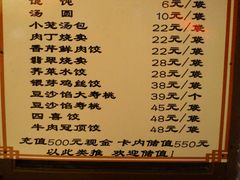 馄饨 6元/袋
汤圆 10元/袋
小笼汤包 22元/袋
肉丁烧卖 22元/袋
香芹鲜肉饺 22元/袋
翡翠烧卖 28元/袋
荠菜水饺 28元/袋
银芽鸡丝饺 28元/袋
豆沙馅大寿桃 39元/个
豆沙馅寿桃 45元/袋
四喜饺 48元/袋
牛肉冠顶饺 48元/袋
充值500元现金 卡内储值550元
以此类推 欢迎储值!